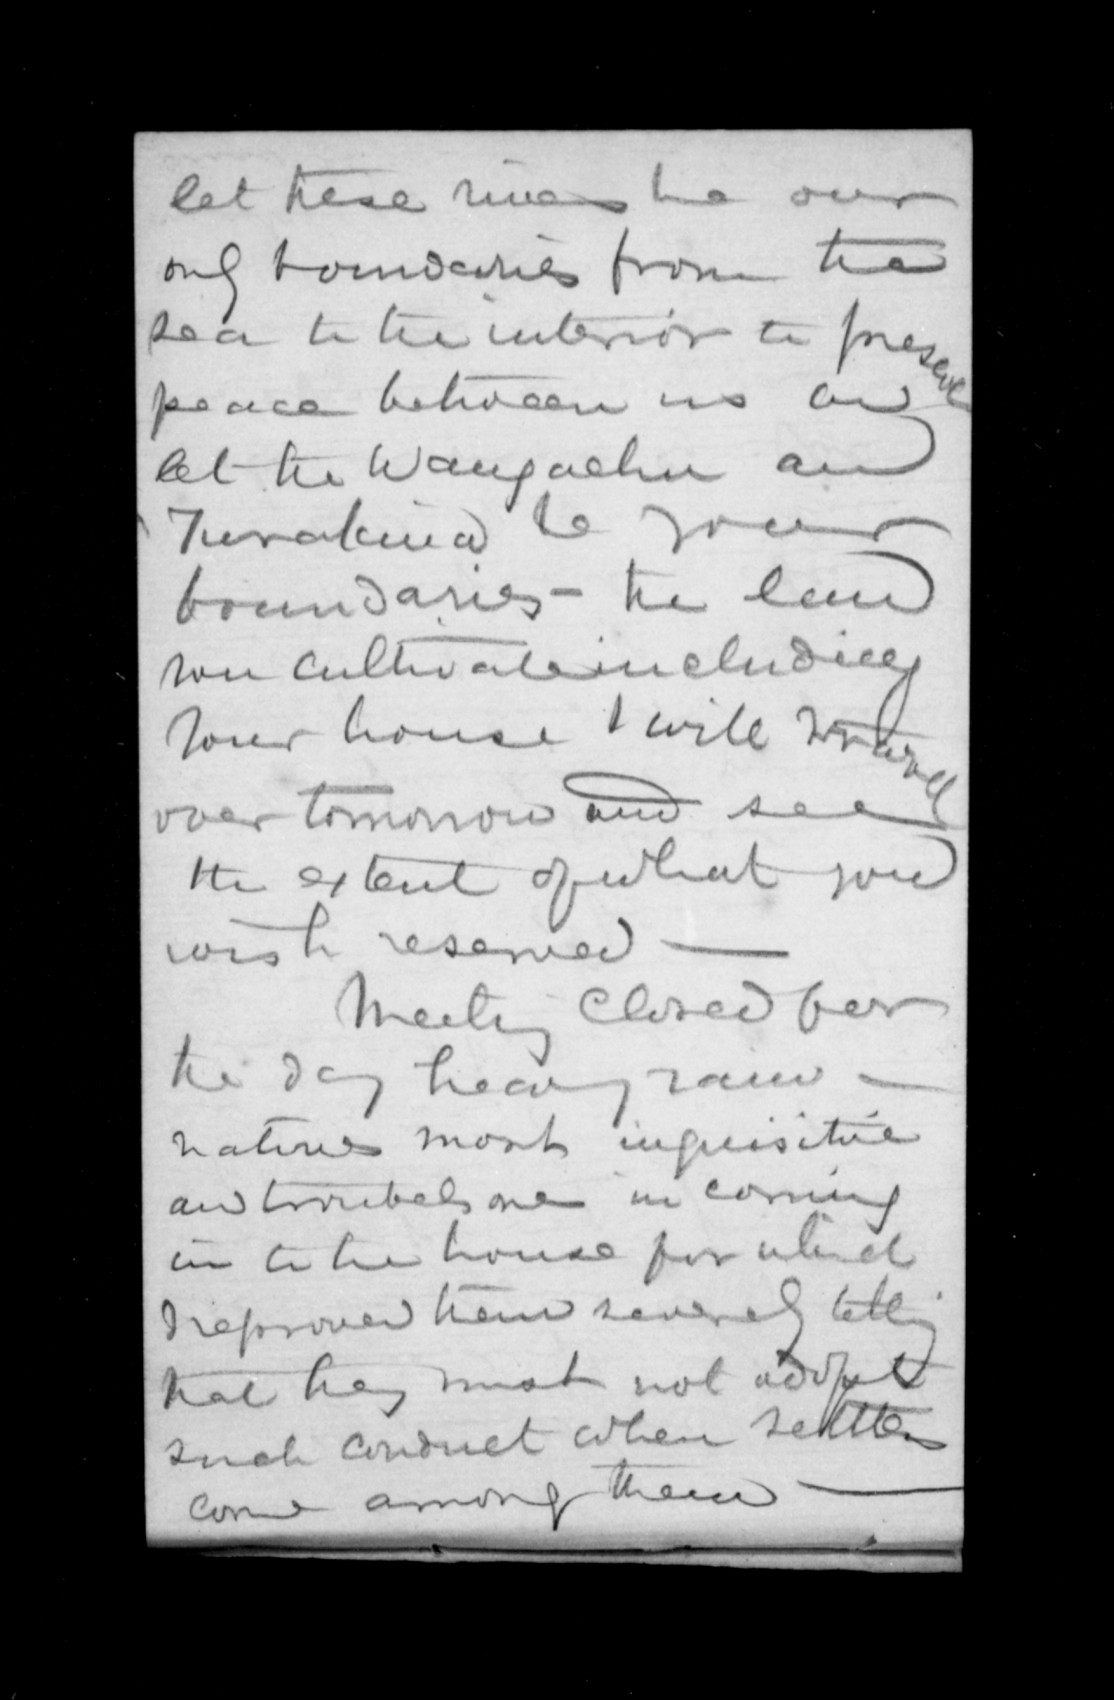 let these rivers be our
only boundaries from the
sea to the interior to preserve
peace between us and
let the Wangaehu and
Turakina be your
boundaries - the land
you cultivate including
your house I will travell
over tomorrow and see
the extent of what you
wish reserved —
Meeting Closed for
the day heavy rain —
natives most inquisitive
and troublesome in coming
in to the house for which
I reproved them severely telling
that they must not adopt
such conduct when settlers
come among them —